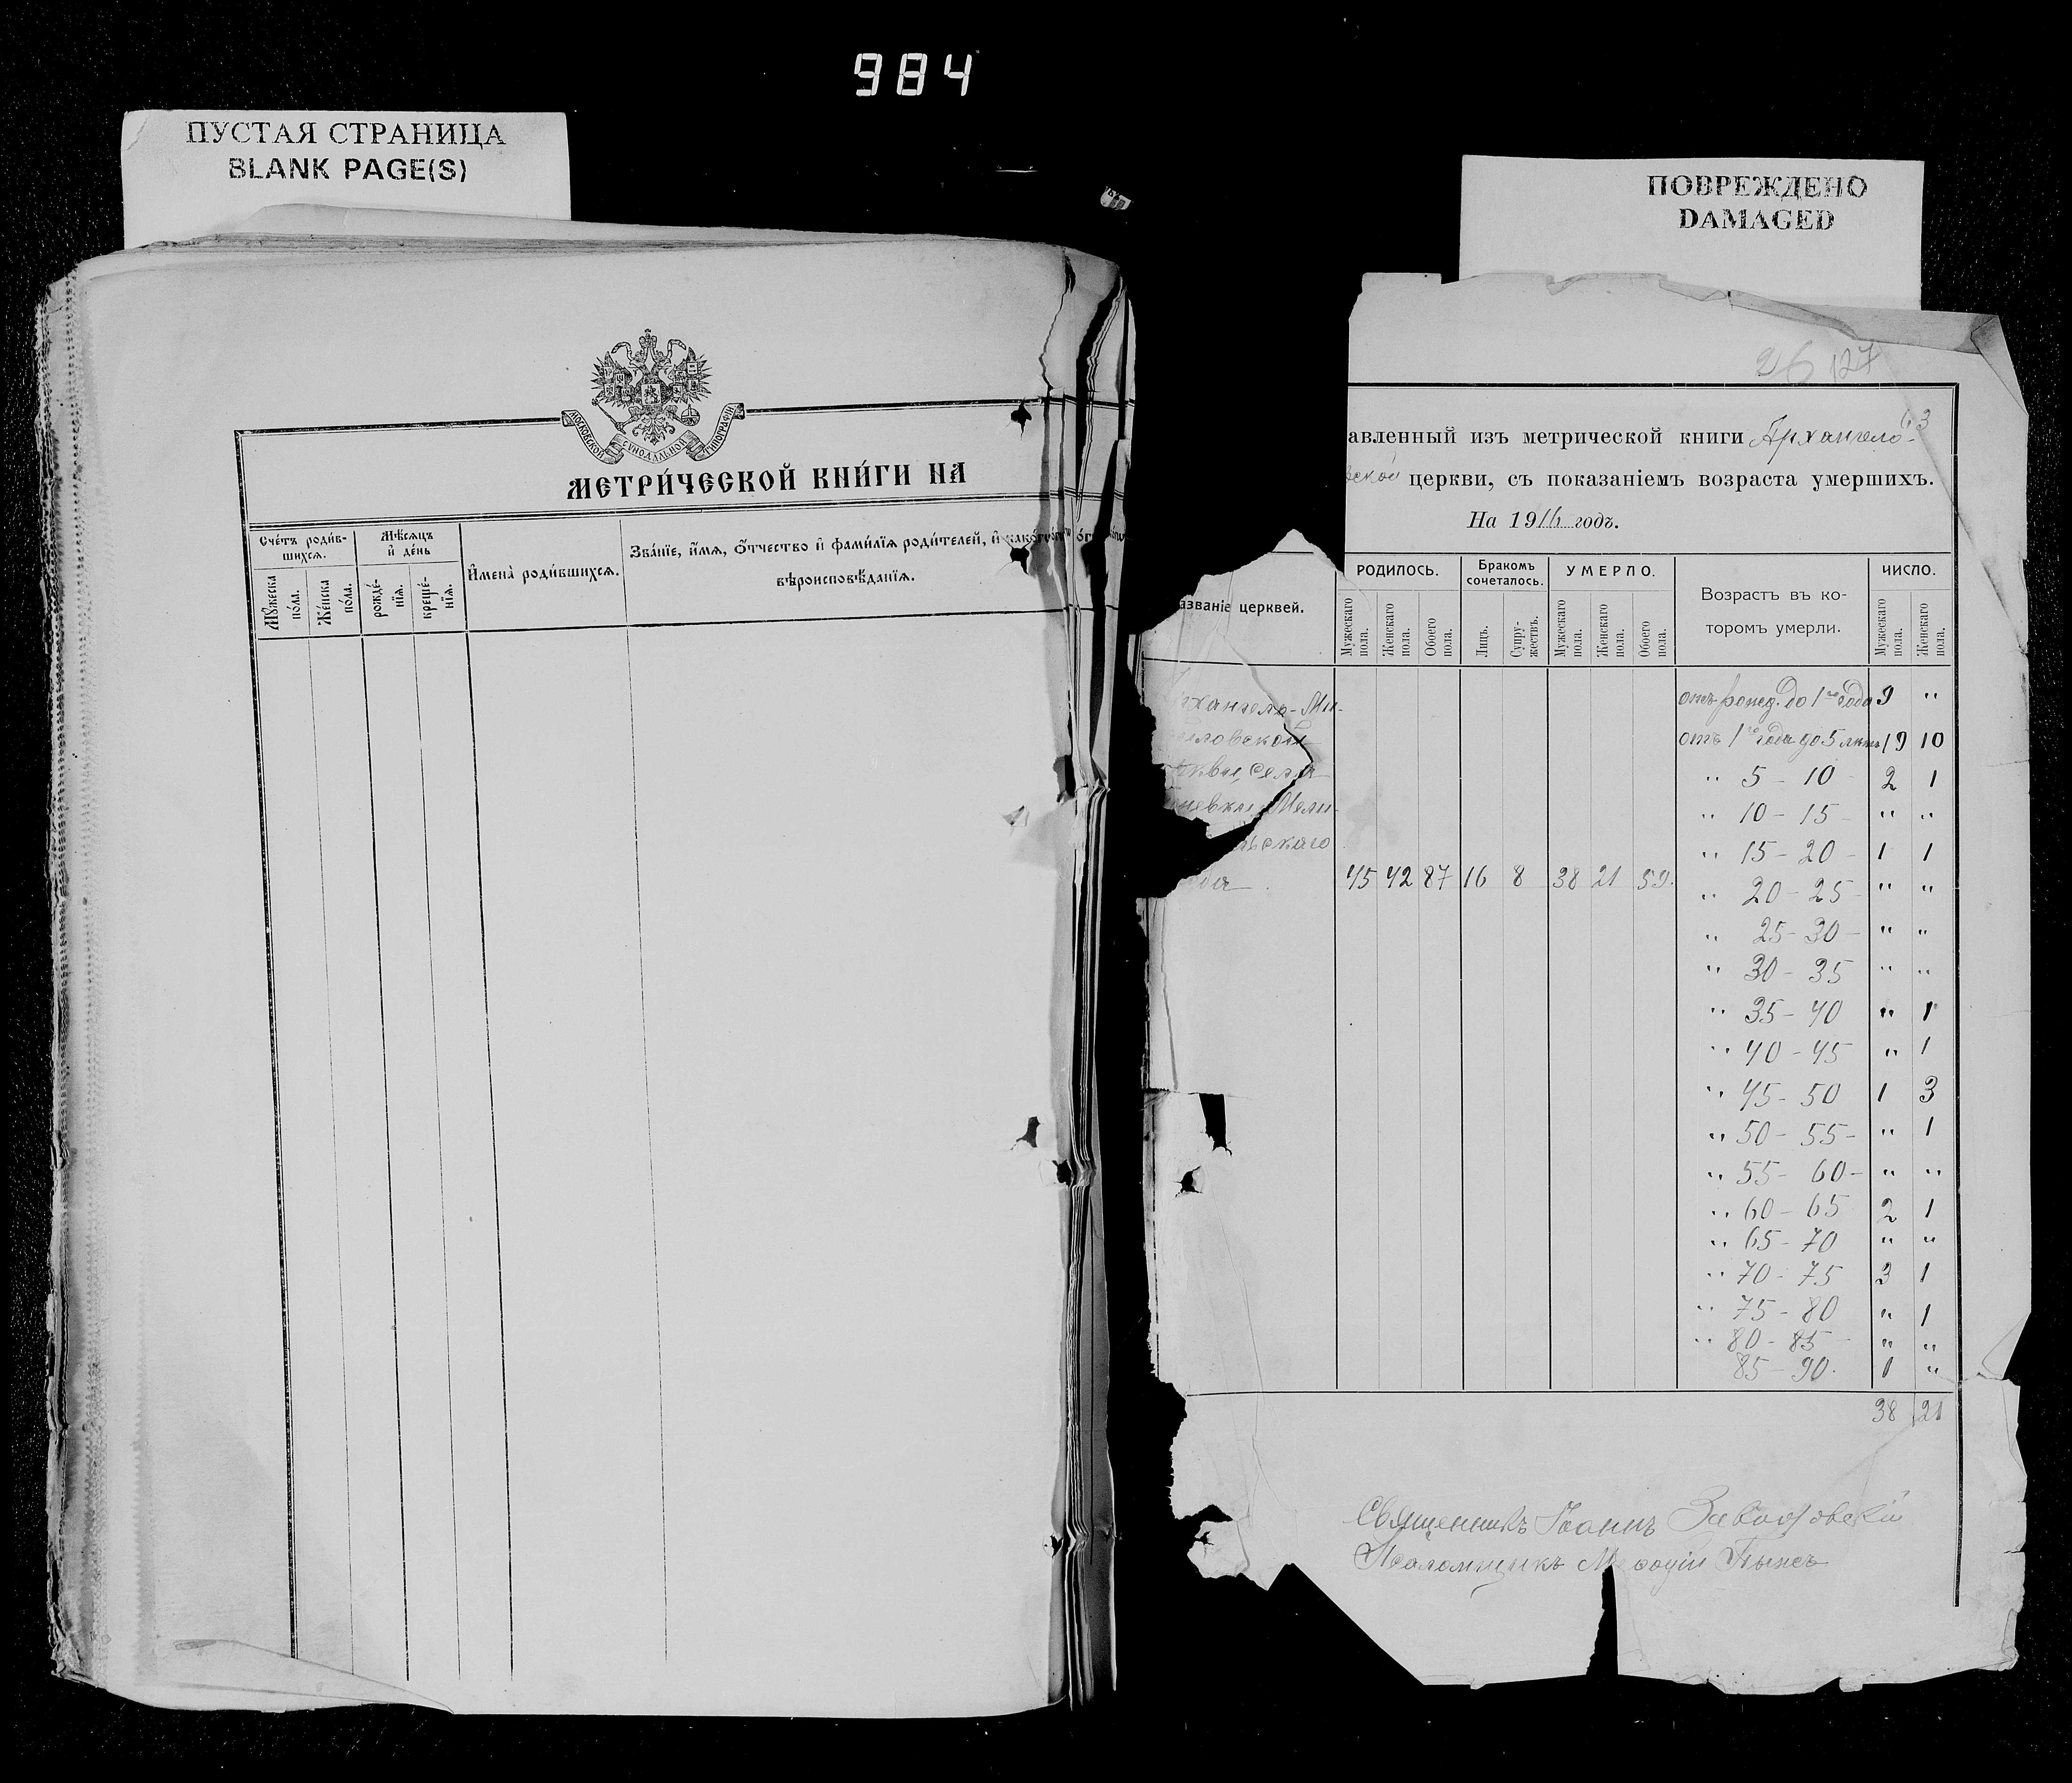 984
ПУСТАЯ СТРАНИЦА
BLANK PAGE(S)
ПОВРЕЖДЕНО
DAMAGED
МОСКОВСКОЙ СѴНОДАЛЬНОЙ ТИПОГРАФІИ
МЕТРИ́ЧЕСКОЙ КНИ́ГИ НА
Сче́тъ роди́в-
шихсѧ.
Мѣ́сѧцъ
и҆ де́нь
Мꙋ́жеска
по́ла.
Же́нска
по́ла.
рожде́-
нїѧ.
креще́-
нїѧ.
И҆мена̀ роди́вшихсѧ.
Зва́нїе, и҆́мѧ, ѻ҆́тчество и҆ фами́лїѧ роди́телей, и҆ како́гѡ
вѣроисповѣ́данїѧ.
26 127
63
авленный изъ метрической книги Архангело-
вской церкви, съ показаніемъ возраста умершихъ.
На 1916 годъ.
азваніе церквей.
РОДИЛОСЬ.
Мужескаго пола.
Женскаго пола.
Обоего пола.
Бракомъ сочеталось.
Лицъ.
Супру-жествъ.
УМЕРЛО.
Мужескаго пола.
Женскаго пола.
Обоего пола.
Возрастъ въ ко-
торомъ умерли.
ЧИСЛО.
Мужескаго пола.
Женскаго пола.
рхангело-Ми-
иловской
ркви, села
невки, Мели-
льскаго
зда
45 42 87 16 8 38 21 59.
отъ рожд. до 1го года 9 "
отъ 1го года до 5 лѣтъ 19 10
" 5 - 10 2 1
" 10 - 15 - " "
" 15 - 20 - 1 1
" 20 - 25 - " "
" 25 - 30 - " "
" 30 - 35 " "
" 35 - 40 " 1
" 40 - 45 " 1
" 45 - 50 1 3
" 50 - 55 - " 1
" 55 - 60 - " "
" 60 - 65 2 1
" 65 - 70 " "
" 70 - 75 3 1
" 75 - 80 " 1
" 80 - 85 - " "
85 - 90. 1 "
38 21
Священникъ Іоаннъ
Псаломщикъ Меѳодій